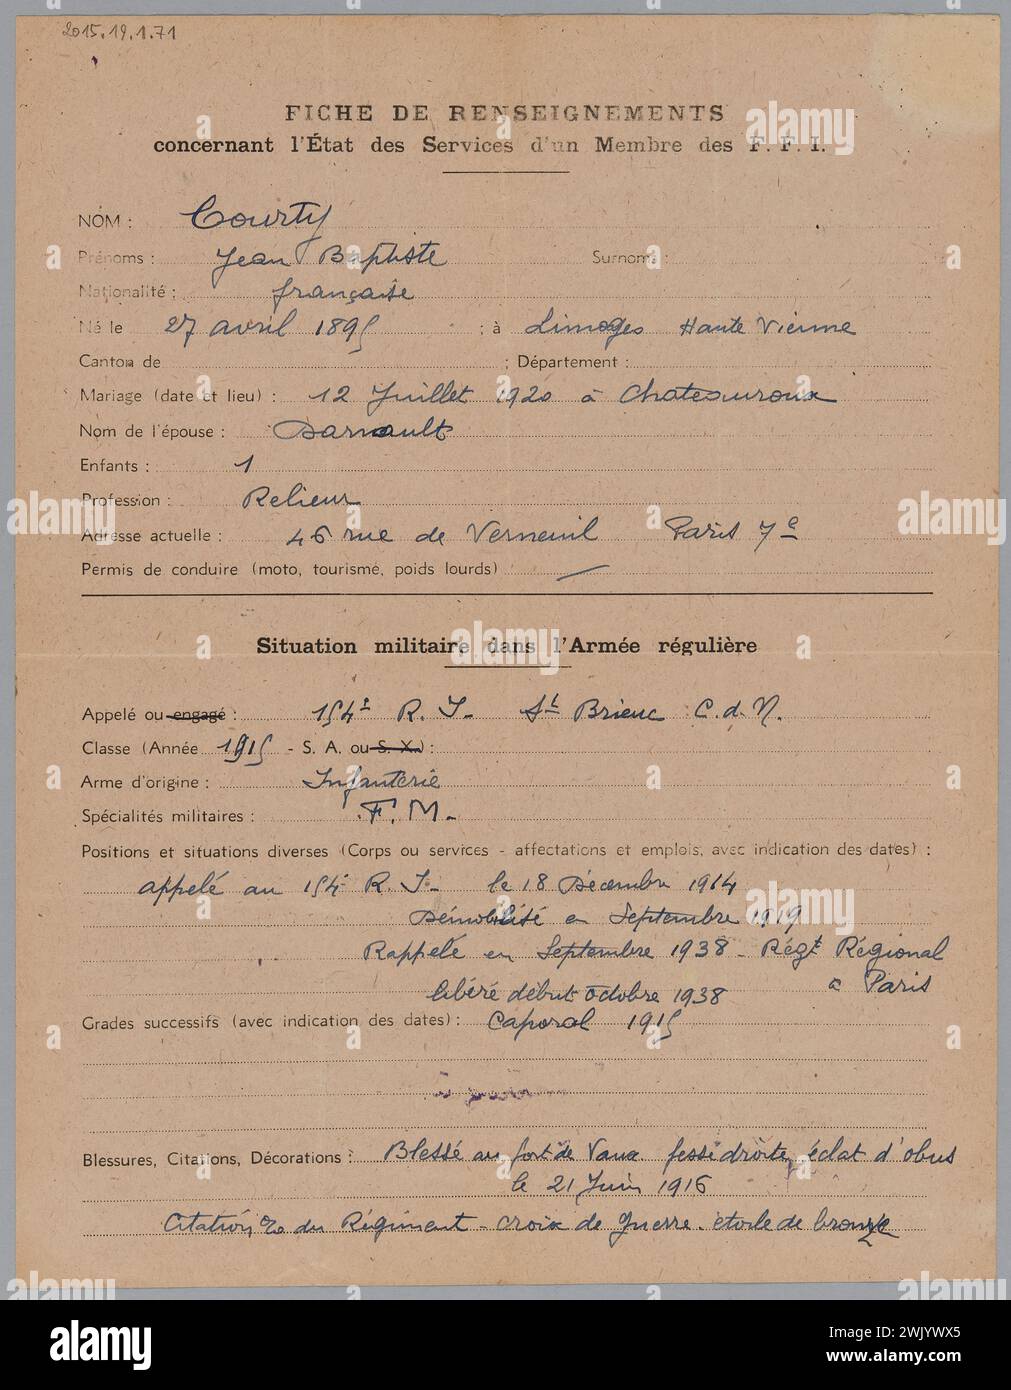 2015.19.1.71
FICHE DE RENSEIGNEMENTS
concernant l'État des Services d'un Membre des F. F. I.
NOM : Courty
Prénoms : Jean Baptiste Surnoms :
Nationalité : française
Né le 27 avril 1895 ; à Limoges Haute Vienne
Canton de ; Département :
Mariage (date et lieu) : 12 Juillet 1920 à Chateauroux
Nom de l'épouse : Darnault
Enfants : 1
Profession : Relieur
Adresse actuelle : 46 rue de Verneuil Paris 7e
Permis de conduire (moto, tourisme, poids lourds) —
Situation militaire dans l'Armée régulière
Appelé ou engagé : 154e R. I. St Brieuc C. d. N.
Classe (Année 1915 - S. A. ou S. X.) :
Arme d'origine : Infanterie
Spécialités militaires : F. M.
Positions et situations diverses (Corps ou services - affectations et emplois, avec indication des dates) :
appelé au 154e R. I. le 18 Décembre 1914
Démobilisé en Septembre 1919
Rappelé en Septembre 1938 - Régt Régional
à Paris
libéré début octobre 1938
Grades successifs (avec indication des dates) : Caporal 1915
Blessures, Citations, Décorations : Blessé au fort de Vaux fesse droite, éclat d'obus
le 21 Juin 1916
Citation du Régiment - croix de guerre. étoile de bronze
alamy
Image ID: 2WJYWX5
www.alamy.com